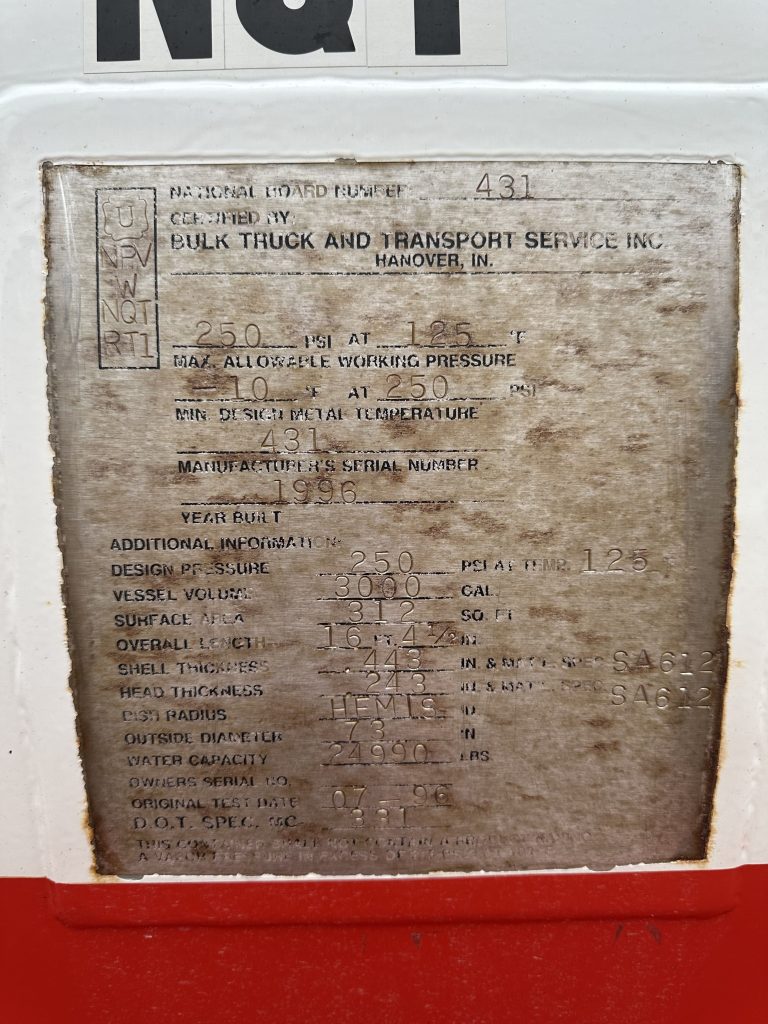 NQT
U
NPV
W
NQT
RT1
NATIONAL BOARD NUMBER 431
CERTIFIED BY:
BULK TRUCK AND TRANSPORT SERVICE INC
HANOVER, IN.
250 PSI AT 125 °F
MAX. ALLOWABLE WORKING PRESSURE
-10 °F AT 250 PSI
MIN. DESIGN METAL TEMPERATURE
431
MANUFACTURER'S SERIAL NUMBER
1996
YEAR BUILT
ADDITIONAL INFORMATION:
DESIGN PRESSURE 250 PSI AT TEMP. 125
VESSEL VOLUME 3000 GAL.
SURFACE AREA 312 SQ. FT
OVERALL LENGTH 16 FT. 4 1/2 IN.
SHELL THICKNESS .443 IN. & MAT'L. SPEC. SA612
HEAD THICKNESS .243 IN. & MAT'L. SPEC. SA612
DISH RADIUS HEMIS IN
OUTSIDE DIAMETER 73 IN
WATER CAPACITY 24990 LBS
OWNERS SERIAL NO.
ORIGINAL TEST DATE 07 - 96
D.O.T. SPEC. MC 331
THIS CONTAINER SHALL NOT CONTAIN A PRODUCT HAVING
A VAPOR PRESSURE IN EXCESS OF